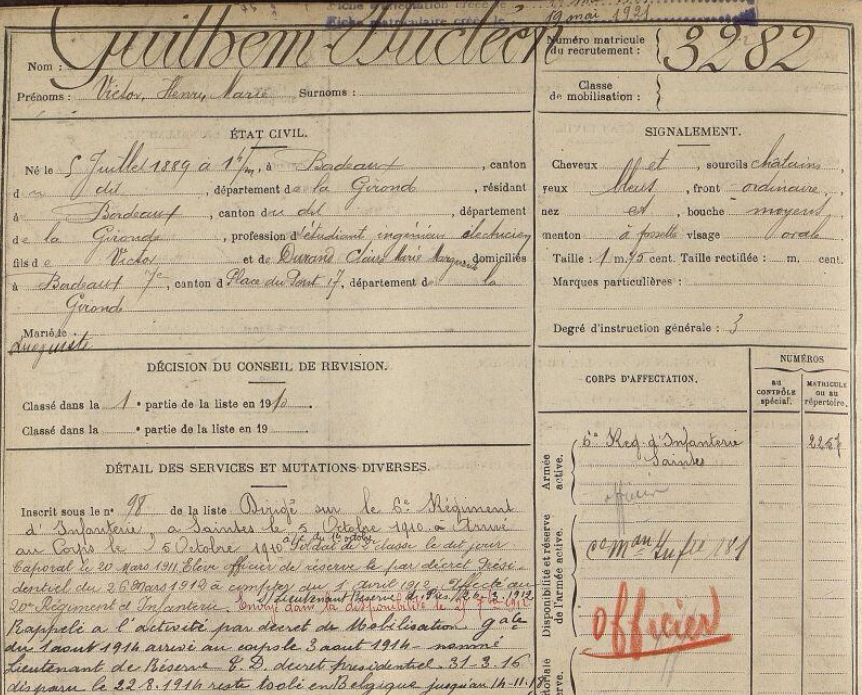 Fiche matriculaire créée le 19 mai 1921
Nom : Guilhem-Ducléon
Prénoms : Victor, Henry, Marie Surnoms :
Numéro matricule
du recrutement : 3282
Classe
de mobilisation :
ÉTAT CIVIL.
Né le 5 Juillet 1889 à , à Bordeaux , canton
du dit , département de la Girond , résidant
à Bordeaux , canton du dit , département
de la Gironde , profession d'étudiant ingénieur électricien
fils de Victor et de Durand Claire Marie Marguerite domiciliés
à Bordeaux 7e , canton d Place du Pont 17, département de la
Gironde
Marié le
SIGNALEMENT.
Cheveux et , sourcils chatains ,
yeux bleus , front ordinaire ,
nez et , bouche moyens ,
menton à fossette visage ovale
Taille : 1 m. 75 cent. Taille rectifiée : m. cent.
Marques particulières :
Degré d'instruction générale : 3
DÉCISION DU CONSEIL DE REVISION.
Classé dans la 1e partie de la liste en 1910.
Classé dans la e partie de la liste en 19
CORPS D'AFFECTATION.
NUMÉROS
au
CONTRÔLE
spécial.
MATRICULE
ou au
répertoire.
Armée
active.
6e Reg. d'Infanterie
Saintes
2267
officier
Disponibilité et réserve
de l'Armée active.
181
Officier
DÉTAIL DES SERVICES ET MUTATIONS DIVERSES.
Inscrit sous le n° 98 de la liste Dirigé sur le 6e Régiment
d'Infanterie à Saintes le 5 Octobre 1910 à Arrivé
au Corps le 5 Octobre 1910 Soldat de 2e classe le dit jour
Caporal le 20 Mars 1911. Elève officier de réserve le par décret Prési-
dentiel du 26 Mars 1912 à compter du 1 avril 1912. Affecté au
20e Régiment d'Infanterie. Envoyé dans la disponibilité le 1912
Rappelé à l'activité par décret de Mobilisation gale
du 1 aout 1914 arrivé au corps le 3 aout 1914 - nommé
Lieutenant de Réserve T.D. decret presidentiel 31-3-16
disparu le 22.8.1914 resté isolé en Belgique jusqu'au 14-11-18